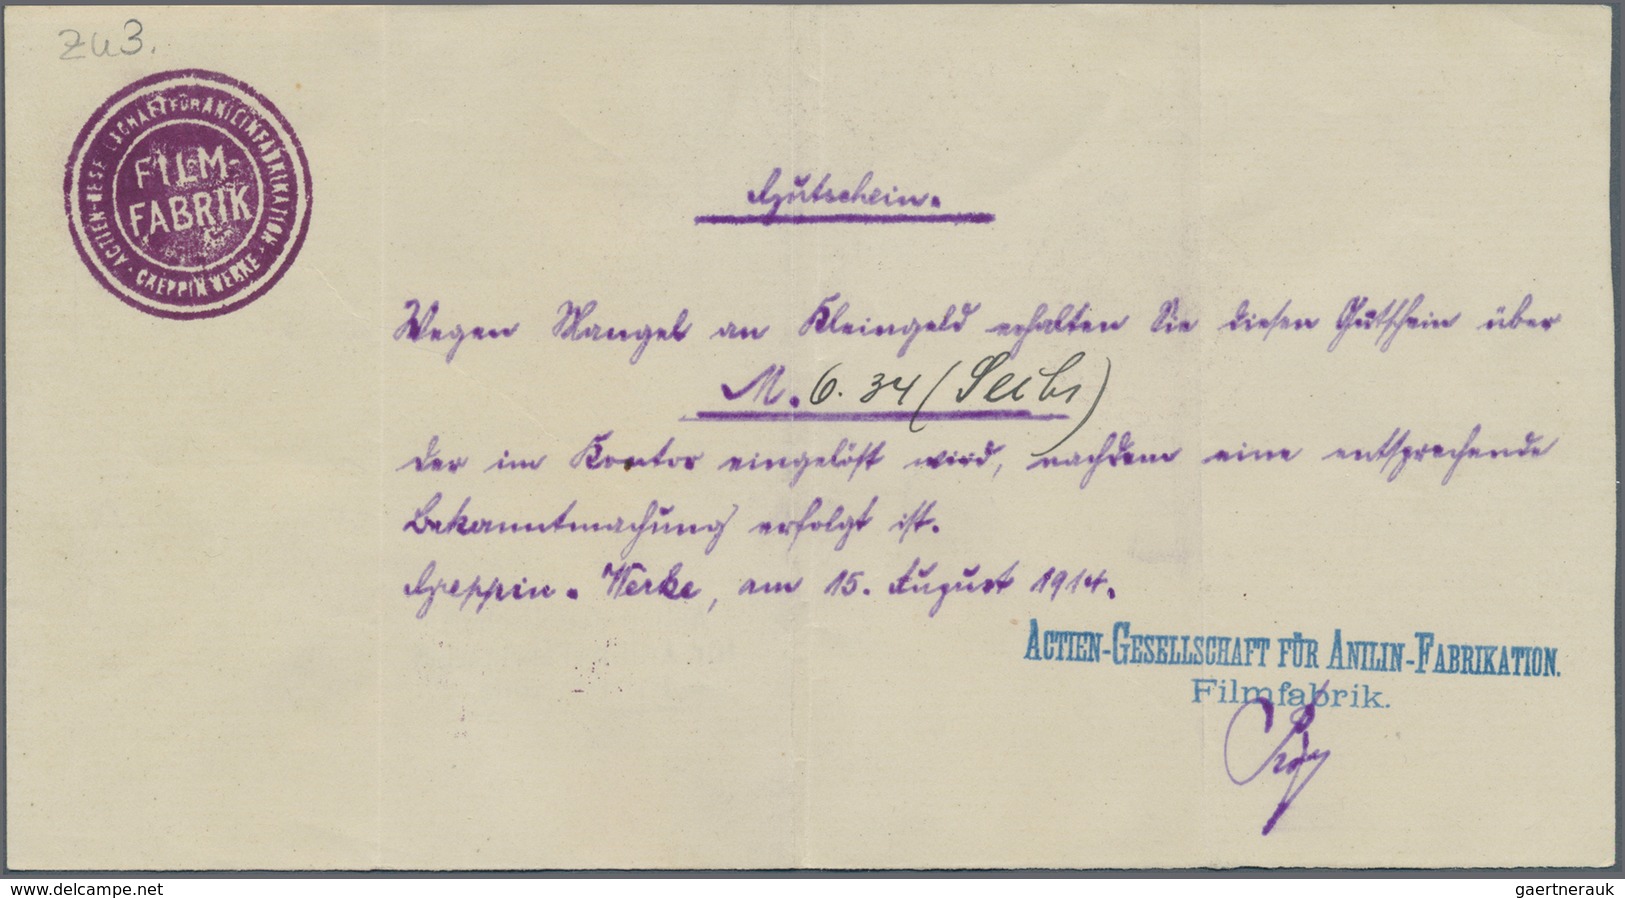 zu 3.
ACTIEN-GESELLSCHAFT FÜR ANILINFABRIKATION · GREPPIN WERKE ·
FILM-
FABRIK
Gutschein.
Wegen Mangel an Kleingeld erhalten Sie diesen Gutschein über
M. 6.34 (Sechs)
der im Kontor eingelöst wird, nachdem eine entsprechende
Bekanntmachung erfolgt ist.
Greppin-Werke, am 15. August 1914.
ACTIEN-GESELLSCHAFT FÜR ANILIN-FABRIKATION.
Filmfabrik.
www.delcampe.net
gaertnerauk